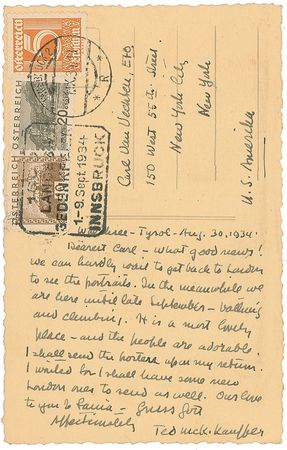 5
Österreich
Groschen
ÖSTERREICH
20
ÖSTERREICH
R
GEDENK
1-9 Sept. 1934
INNSBRUCK
Carl Van Vechten, Esq
150 West 55th Street.
New York City
New York
U.S. Amerika
Tyrol - Aug. 30, 1934.
Dearest Carl - What good news!
We can hardly wait to get back to London
to see the portraits. In the meanwhile we
are here until late September - bathing
and climbing. It is a most lovely
place - and the people are adorable.
I shall send the posters upon my return.
I waited for I shall have some new
London ones to send as well. Our love
to you & Fania - Gruss Gott
Affectionately
Ted McK. Kauffer